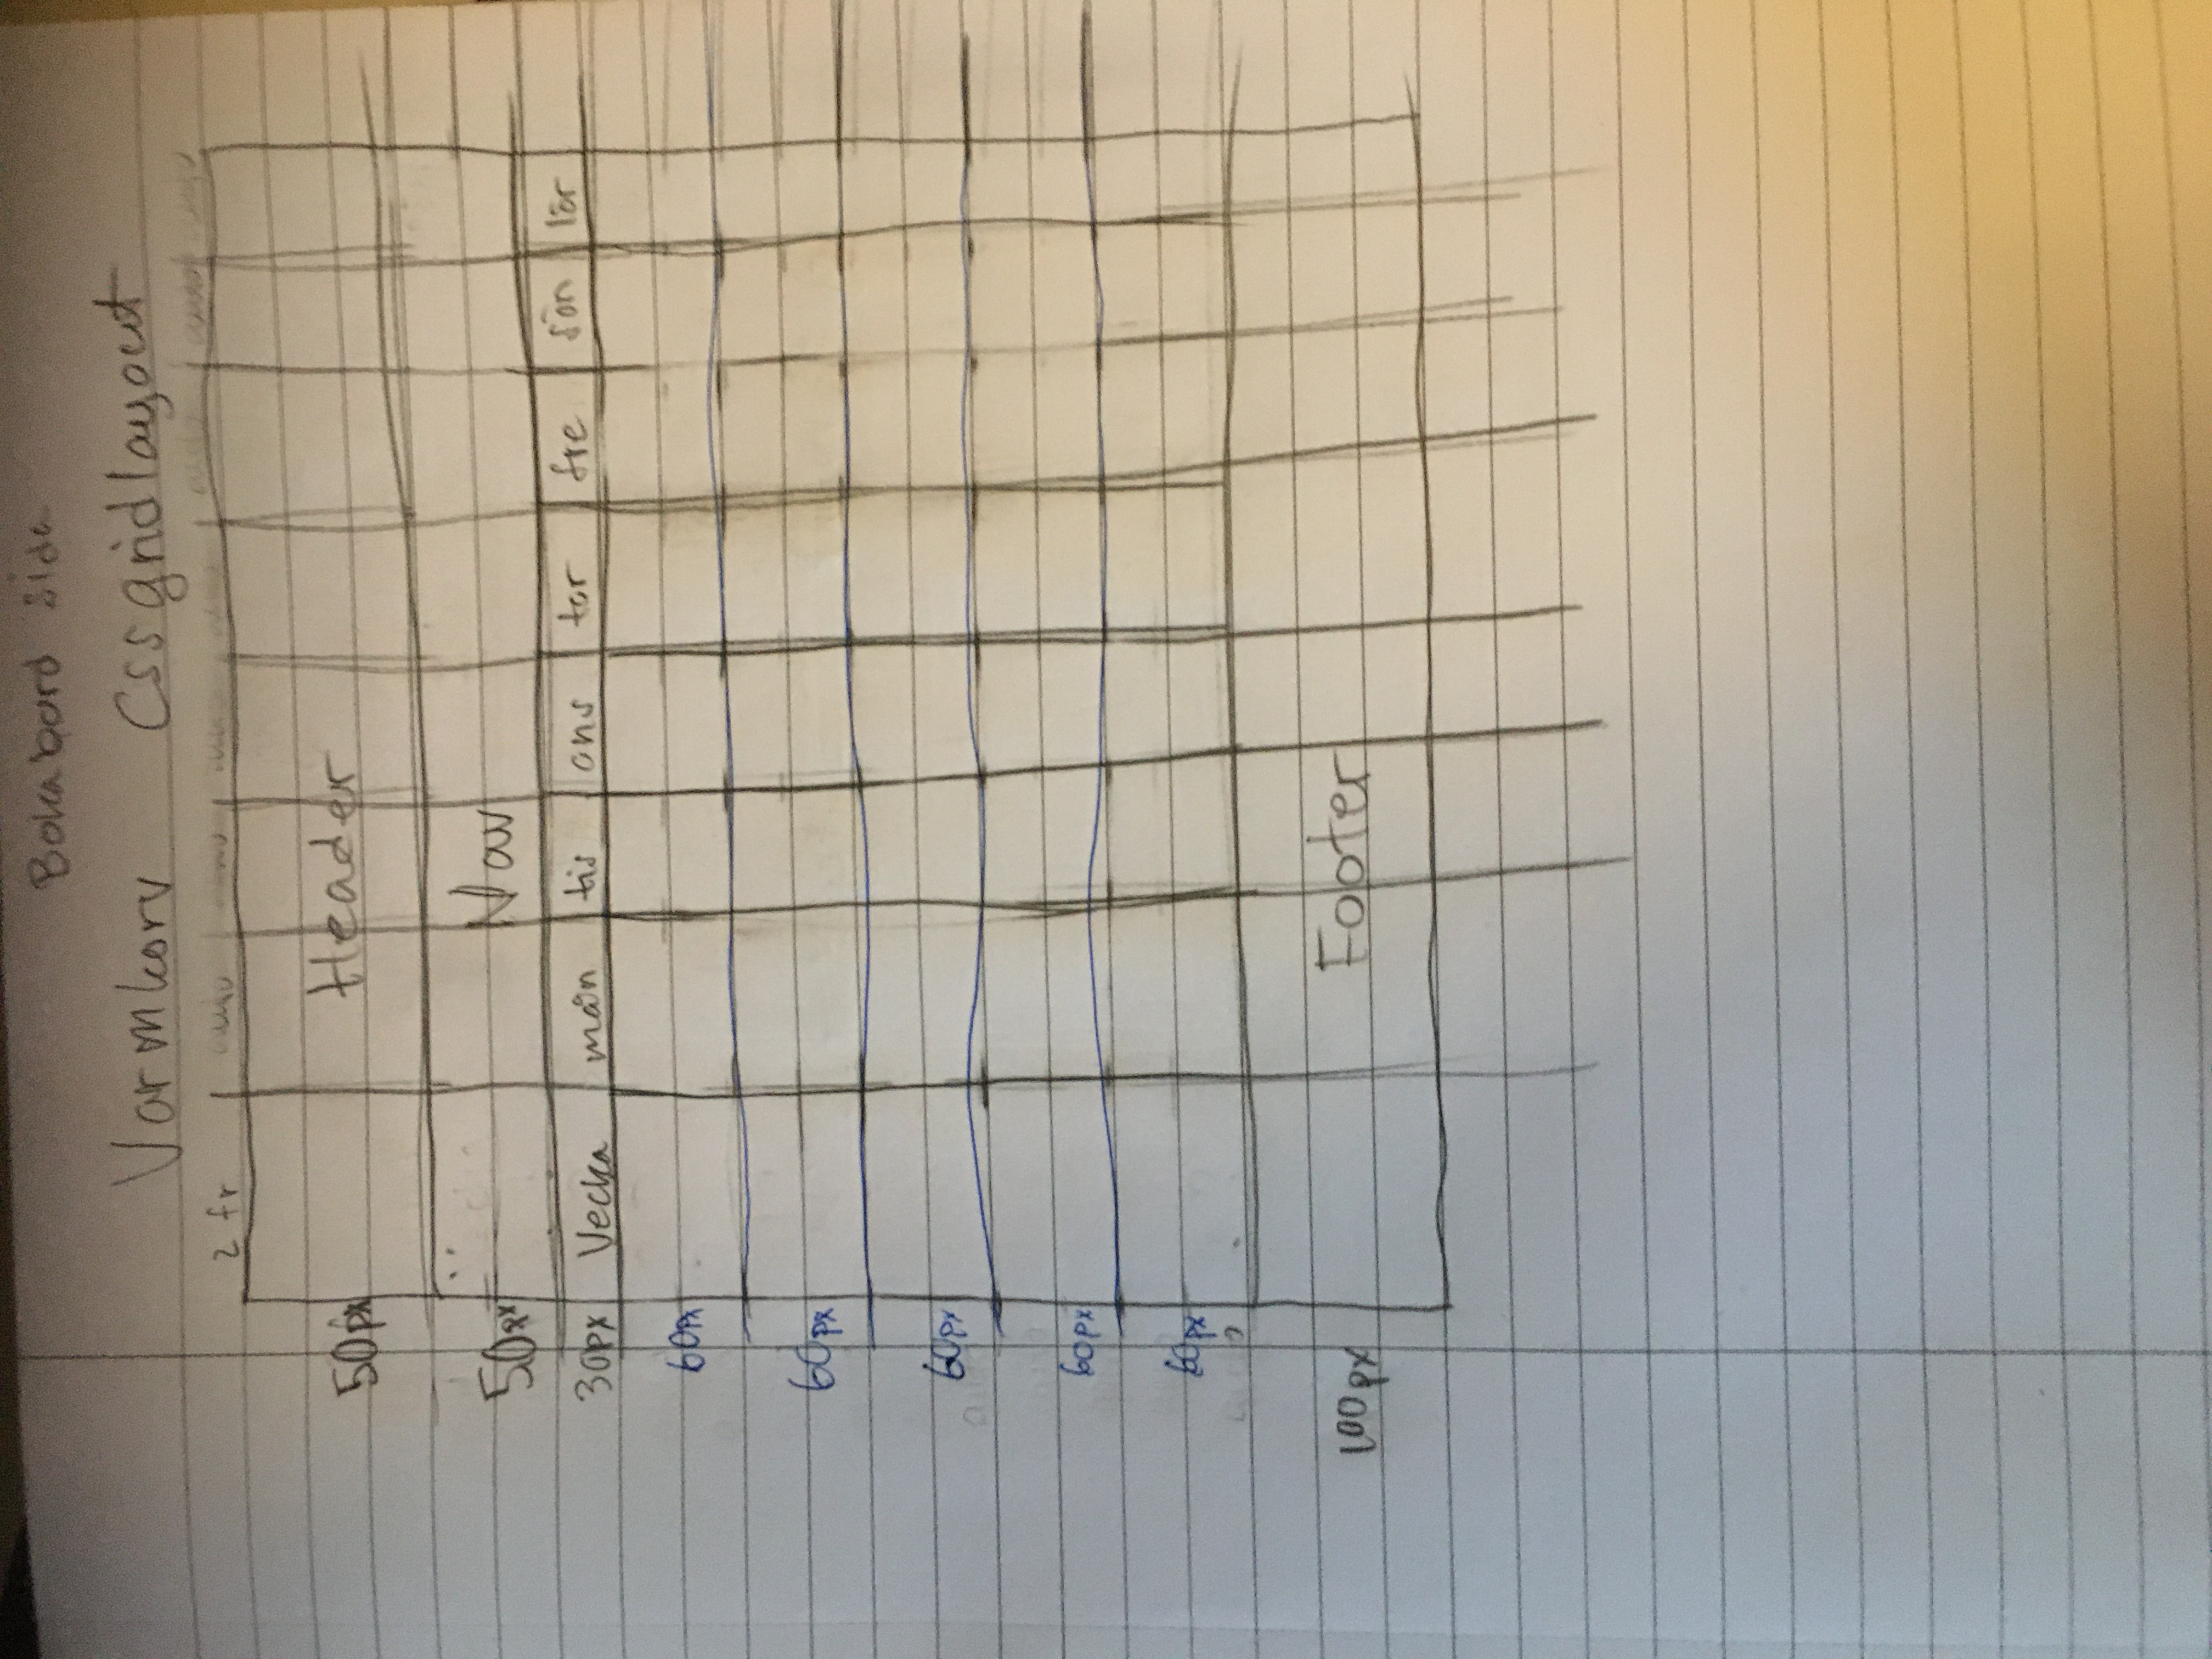 Boka bord sida
Varmkorv Cssgridlayout
2 fr auto auto auto auto auto
50px Header
50px Nav
30px Vecka mån tis ons tor fre sön lör
60px
60px
60px
60px
60px
100px Footer